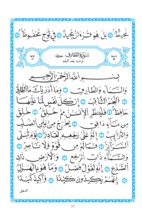 مُّحِيطٌۢ ۝ بَلْ هُوَ قُرْءَانٌ مَّجِيدٌ ۝ فِى لَوْحٍ مَّحْفُوظٍۭ ۝
سُورَةُ الطَّارِقِ
بِسْمِ ٱللَّهِ ٱلرَّحْمَٰنِ ٱلرَّحِيمِ
وَٱلسَّمَآءِ وَٱلطَّارِقِ ۝ وَمَآ أَدْرَىٰكَ مَا ٱلطَّارِقُ ۝
ٱلنَّجْمُ ٱلثَّاقِبُ ۝ إِن كُلُّ نَفْسٍ لَّمَّا عَلَيْهَا
حَافِظٌ ۝ فَلْيَنظُرِ ٱلْإِنسَٰنُ مِمَّ خُلِقَ ۝ خُلِقَ
مِن مَّآءٍ دَافِقٍ ۝ يَخْرُجُ مِنۢ بَيْنِ ٱلصُّلْبِ
وَٱلتَّرَآئِبِ ۝ إِنَّهُۥ عَلَىٰ رَجْعِهِۦ لَقَادِرٌ ۝ يَوْمَ تُبْلَى
ٱلسَّرَآئِرُ ۝ فَمَا لَهُۥ مِن قُوَّةٍ وَلَا نَاصِرٍ ۝
وَٱلسَّمَآءِ ذَاتِ ٱلرَّجْعِ ۝ وَٱلْأَرْضِ ذَاتِ
ٱلصَّدْعِ ۝ إِنَّهُۥ لَقَوْلٌ فَصْلٌ ۝ وَمَا هُوَ بِٱلْهَزْلِ ۝
إِنَّهُمْ يَكِيدُونَ كَيْدًا ۝ وَأَكِيدُ كَيْدًا